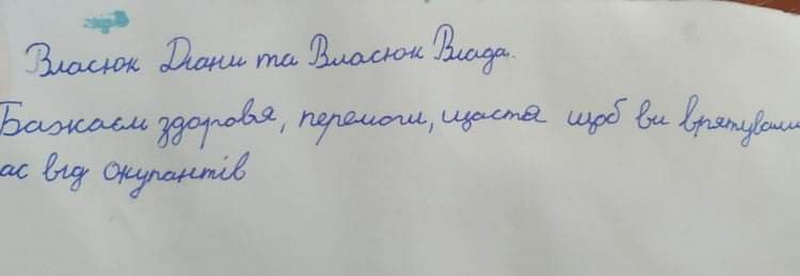 Власюк Діани та Власюк Влада.
Бажаєм здоровья, перемоги, щастя щоб ви врятували
ас від окупантів